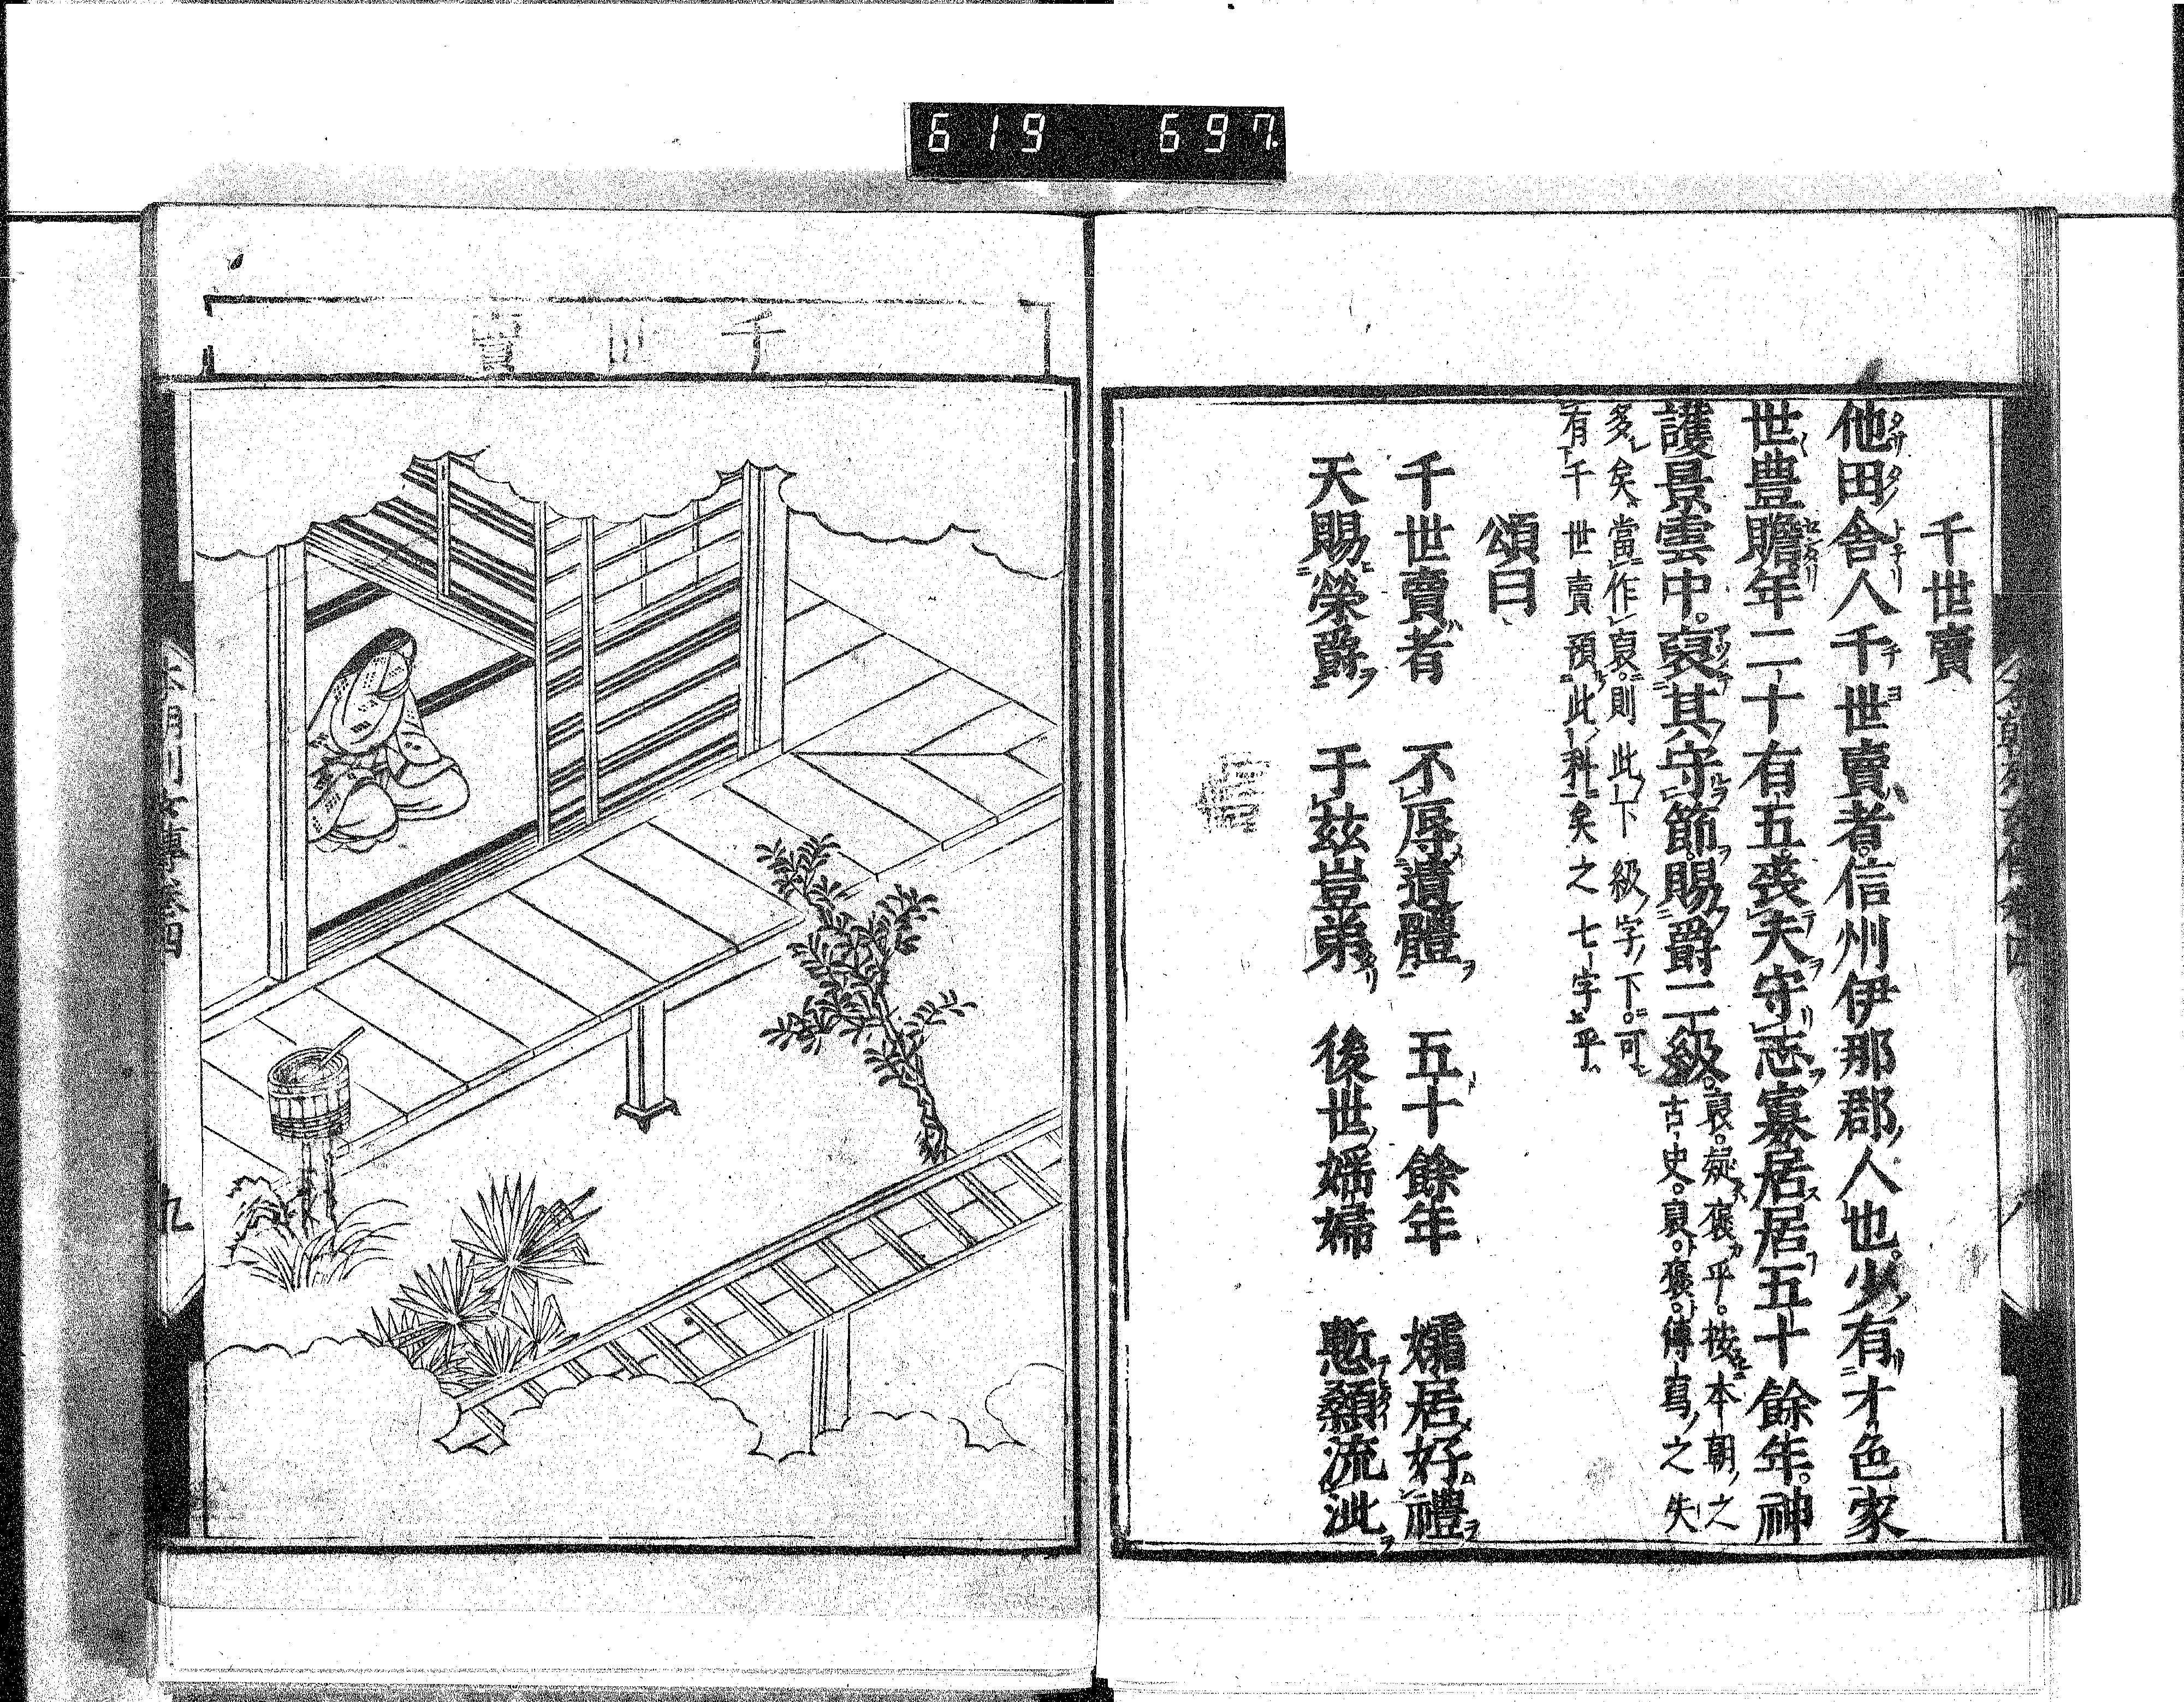 619 697
千世賣
他田舍人千世賣者信州伊那郡人也少有才色家
世豊贍年二十有五喪夫守志寡居居五十餘年神
護景雲中裒其守節賜爵二級
裒疑褒乎按本朝之
古史裒褒傳寫之失
多矣當作裒則此下級字下可
有千世賣預此科矣之七字乎
頌曰
千世賣者 不辱遺體 五十餘年 孀居好禮
天賜榮爵 于茲豈弟 後世婬婦 慙顙流泚
千世賣
本朝列女傳卷四
九